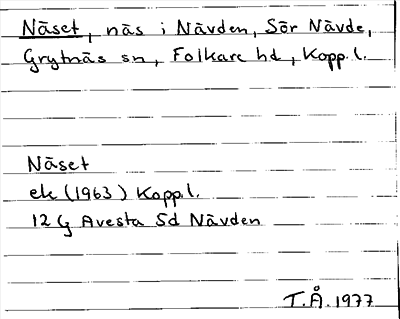 Näset, näs i Nävden, Sör Nävde,
Grytnäs sn, Folkare hd, Kopp.l.
Näset
ek (1963) Kopp.l.
12 G Avesta 5d Nävden
T.Å. 1977